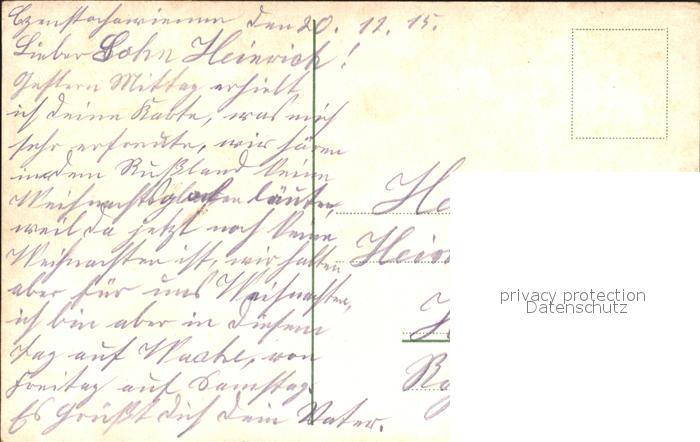 den 20. 12. 15.
Lieber Sohn Heinrich!
Gestern Mittag erhielt
ich deine Karte, was mich
sehr erfreute, wir hören
in dem Rußland keine
Weihnachtsglocken läuten,
weil da jetzt noch keine
Weihnachten ist, wir halten
aber für uns Weihnachten,
ich bin aber in diesem
Tag auf Wache, von
Freitag auf Samstag.
Es Grüßt dich dein Vater.
He
Hein
privacy protection
Datenschutz